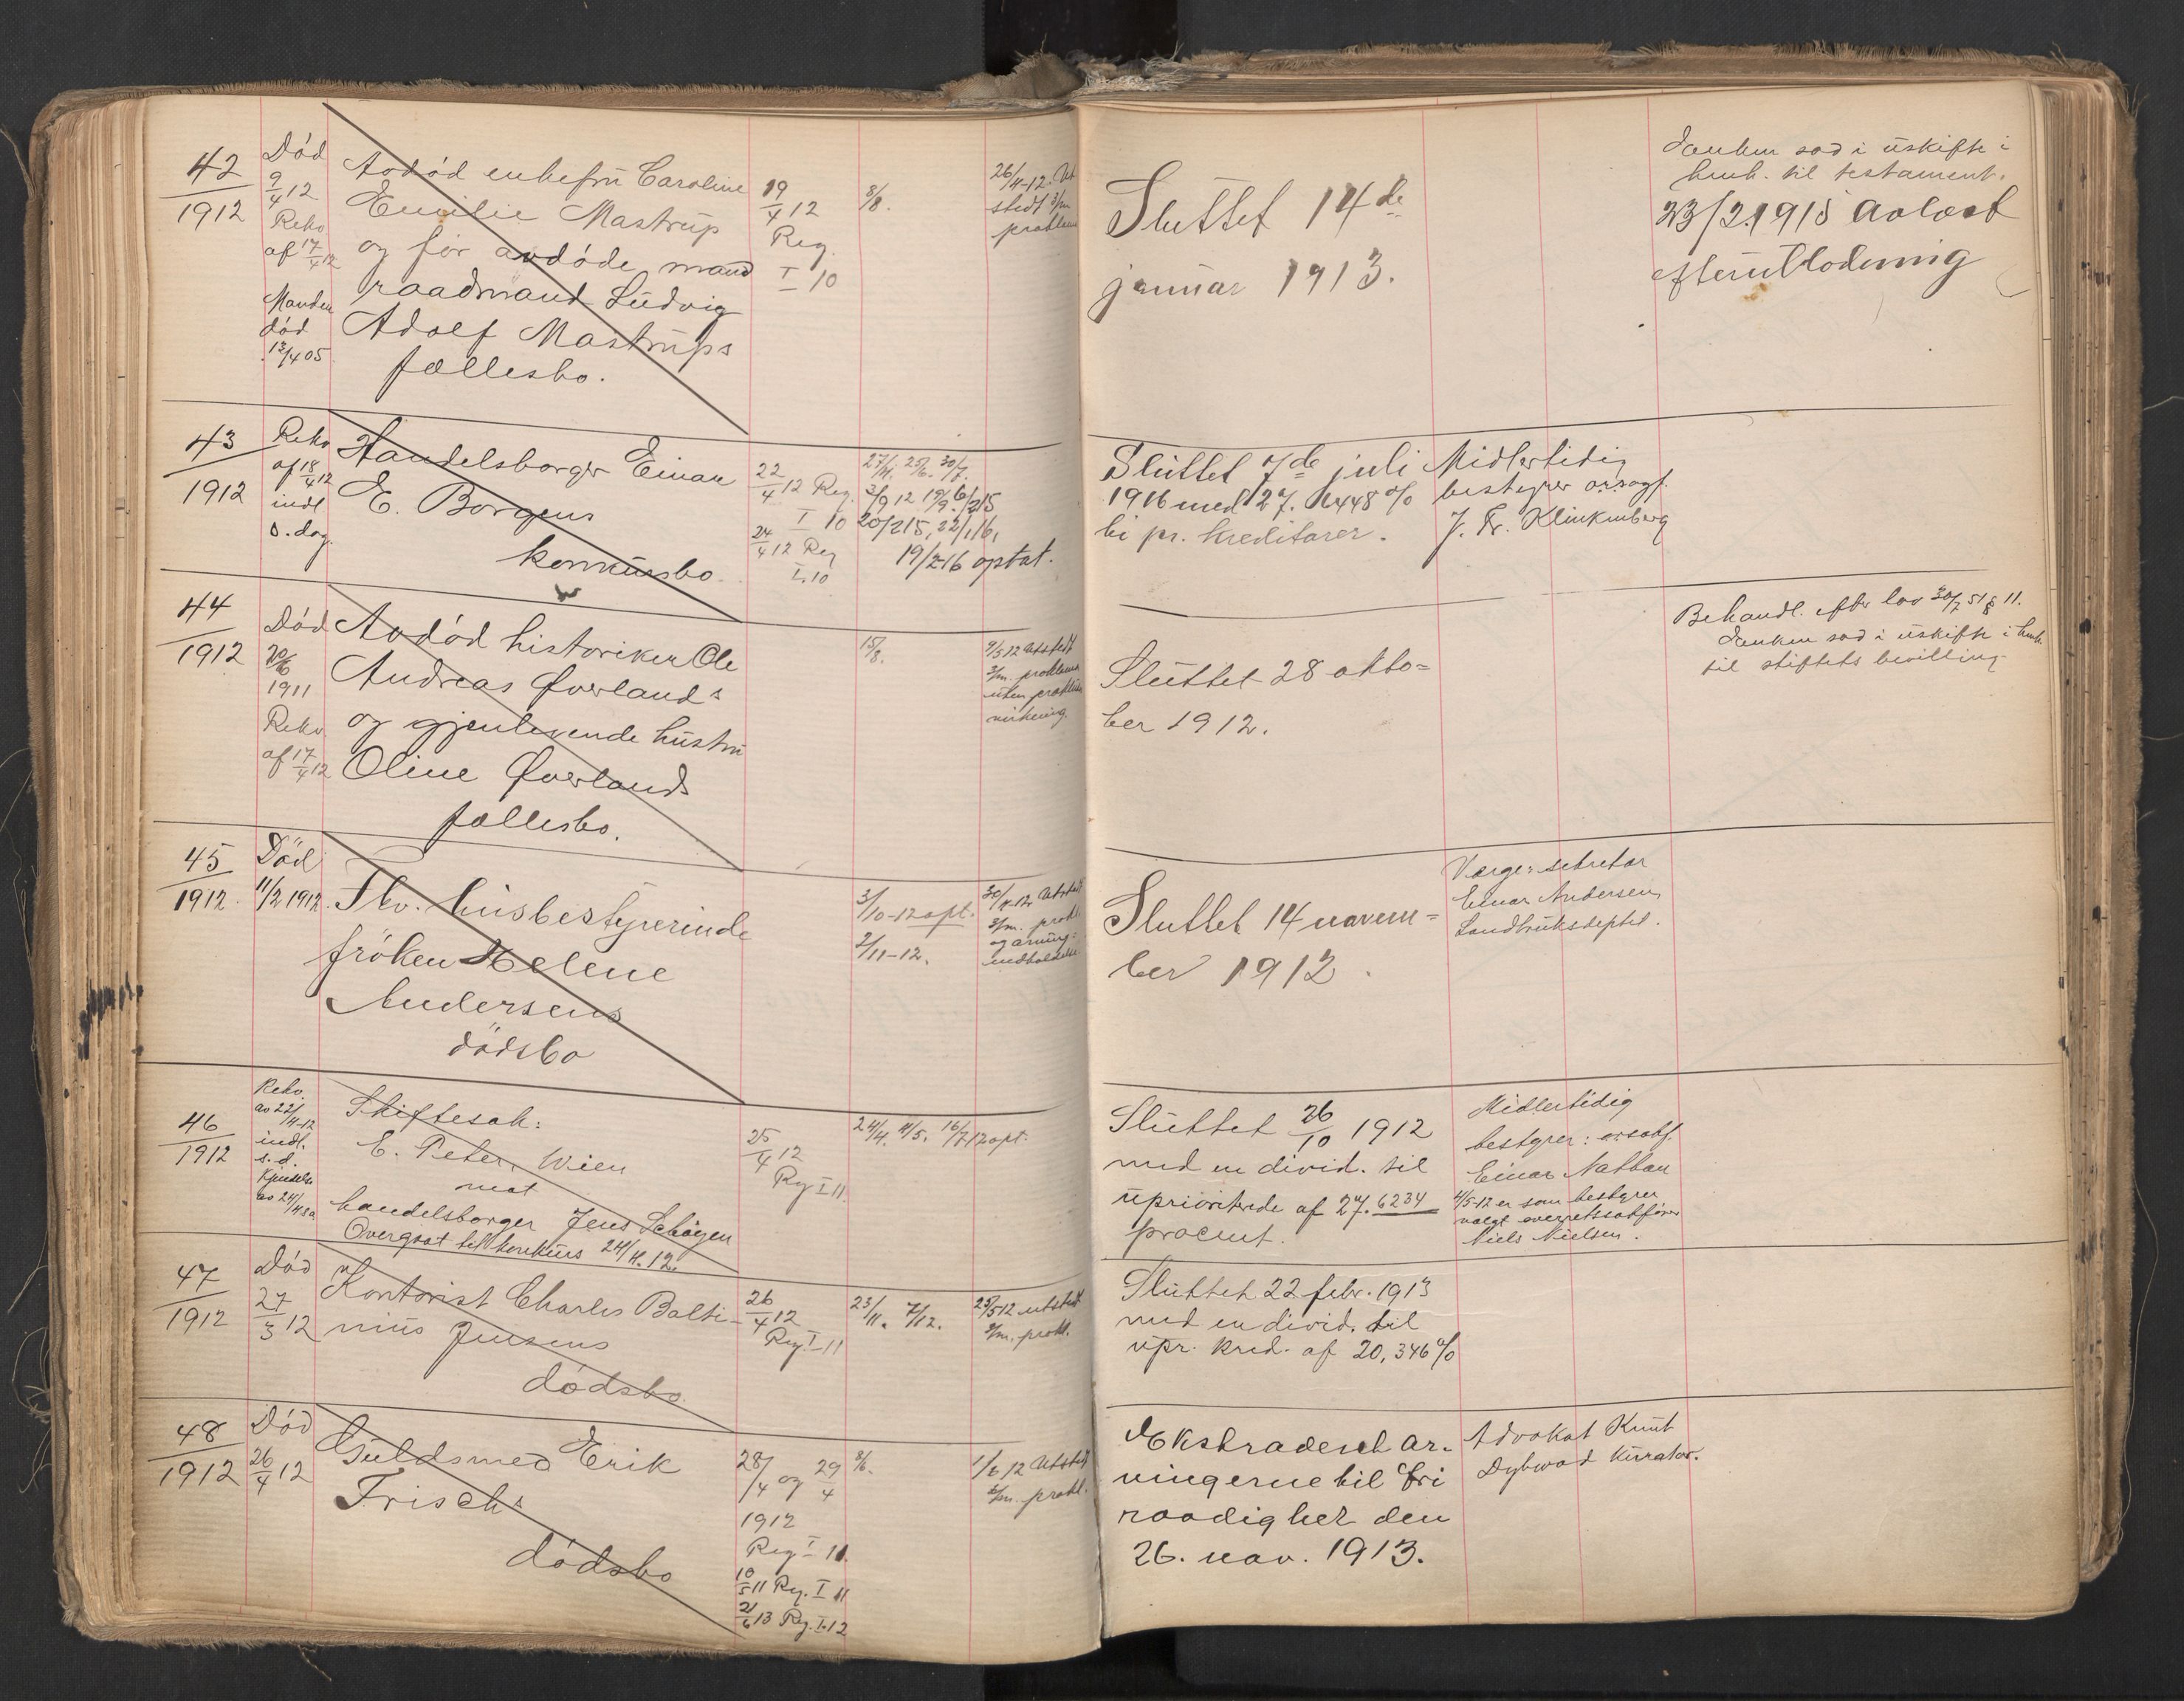 42
1912
Død
9/4 12
Rekv.
af 17/4 12
Manden
død
13/4 05
Avdød enkefru Caroline
Emilie Mastrup
og før avdøde mand
raadmand Ludvig
Adolf Mastrups
fællesbo.
19/4 12
Reg.
I 10
8/8.
26/4-12. Ut-
stedt 3/m
proklama
Sluttet 14de
januar 1913.
Enken sad i uskifte i
henh. til testament.
23/2 1915 Avlæst
efterutlodning
43
1912
Rekv
af 18/4 12
indl
s. dag.
Handelsborger Einar
E. Borgens
konkursbo.
22/4 12 Reg.
I 10
24/4 12 Reg
I. 10
20/2 15, 22/1 16,
19/2-16 optat.
Sluttet 7de juli
1916 med 27.
pr. kreditorer.
Midlertidig
bestyrer o.r.sagf.
J. Fr. Klinkenberg
44
1912
Død
1911
Rekv.
af 17/4 12
Avdød historiker Ole
Andreas Øverlands
og gjenlevende hustru
Oline Øverlands
fællesbo.
15/8.
9/5 12 Utstedt
3/m. proklama
uten præklusiv
virkning.
Sluttet 28 okto=
ber 1912.
Behandl. efter lov 30/7 51 § 11.
Enken sad i uskifte i henh.
til stiftets bevilling
45
1912.
Död
11/2 1912.
Fhv. husbestyrerinde
fröken Helene
Andersens
dödsbo
3/10-12 opt.
2/11-12.
30/4-12. Utstedt
3/m. prokl.
Sluttet 14 novem=
ber 1912.
Værge: sekretær
Einar Andersen,
Landbruksdeptet.
46
1912
Rekv.
av 22/4-12
indl.
s. d.
Kjendelse
av 24/4 s.a
Skiftesak:
E. Peter Wien
mot
handelsborger Jens Schøyen
Overgaat til konkurs 24/4. 12.
25/4 12
Reg I 11.
24/4. 4/5. 16/7 12 opt.
Sluttet 26/10 1912
med en divid. til
uprioriterede af 27. 6234
procent.
Midlertidig
bestyrer: o.r.sakf.
Einar Nathan
4/5-12 er som bestyrer
valgt overretssakfører
Niels Nielsen.
47
1912
Død
27/3 12
Kontorist Charles Balti-
nius Jensens
dødsbo.
26/4 12
Reg. I-11
23/11. 7/12.
25/5 12 utstedt
3/m. prokl.
Sluttet 22 febr. 1913
med en divid. til
upr. kred. af 20,346 %
48
1912
Død
26/4 12
Guldsmed Erik
Frischs
dødsbo
28/4 og 29/4
1912
Reg I 11.
10/5 11 Reg. I 11
21/6 13 Reg. I. 12
12 Utstedt
prokl.
Ekstraderet ar-
vingerne til fri
raadighet den
26. nov. 1913.
Advokat Knut
Dybwad kurator.